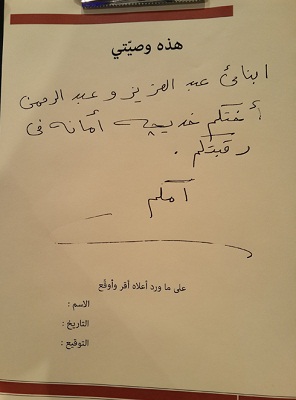 هذه وصيّتي
ابنائي عبد العزيز و عبد الرحمن
أختكم خديجه أمانه في
رقبتكم .
أمكم
على ما ورد أعلاه أقر وأوقّع
الاسم :
التاريخ :
التوقيع :